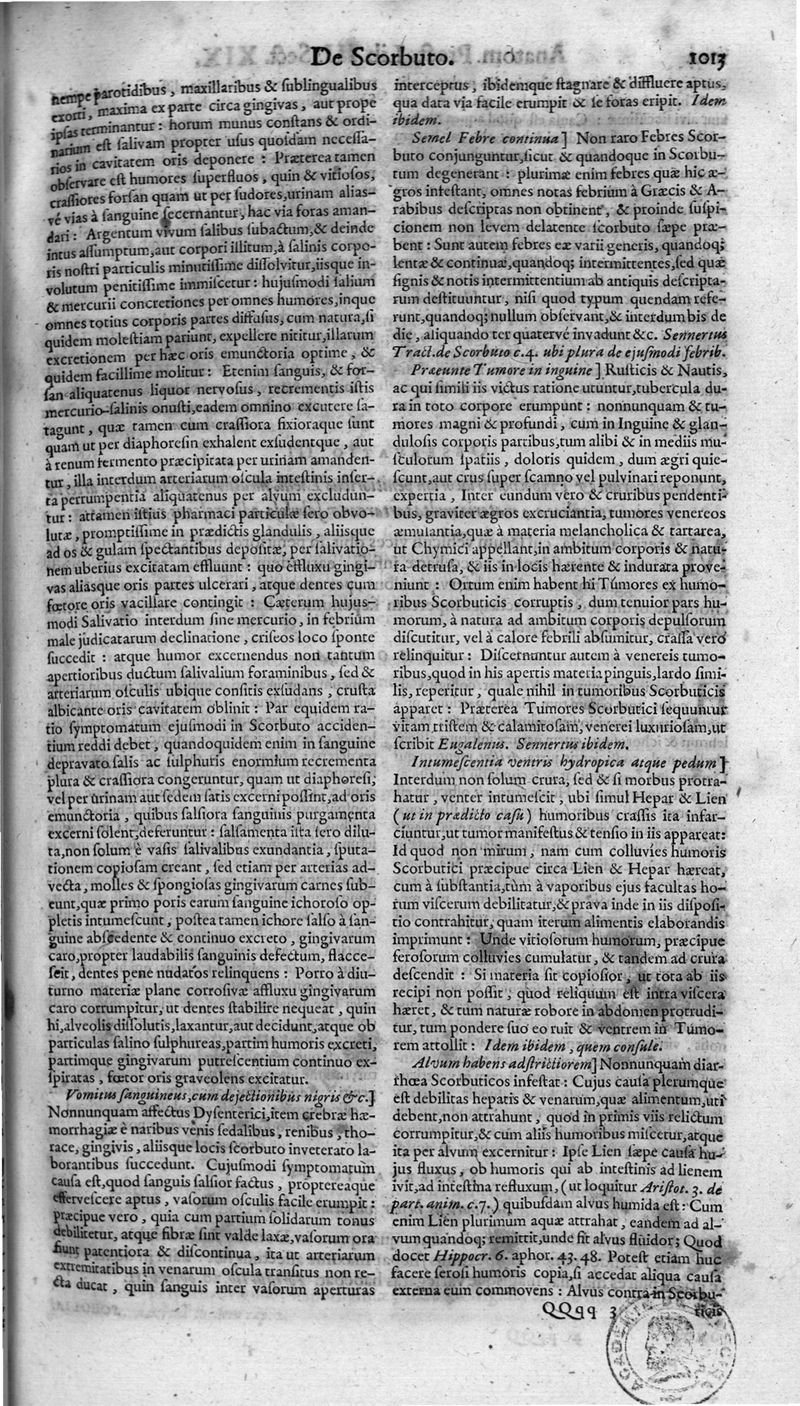 De Scorbuto.
1013
nempe parotidibus, maxillaribus & ſublingualibus
exorti, maxima ex parte circa gingivas, aut prope
ipſas terminantur: horum munus conſtans & ordi-
narium eſt ſalivam propter uſus quoſdam neceſſa-
rios in cavitatem oris deponere: Præterea tamen
obſervare eſt humores ſuperfluos, quin & vitioſos,
craſſiores forſan quam ut per ſudores, urinam alias-
vé vias à ſanguine ſecernantur, hac via foras aman-
dari: Argentum vivum ſalibus ſubactum, & deinde
intus aſſumptum, aut corpori illitum, à ſalinis corpo-
ris noſtri particulis minutiſſime diſſolvitur, iisque in-
volutum penitiſſime immiſcetur: hujuſmodi ſalium
& mercurii concretiones per omnes humores, inque
omnes totius corporis partes diffuſus, cum natura, ſi
quidem moleſtiam pariunt, expellere nititur, illarum
excretionem per hæc oris emunctoria optime, &
quidem facillime molitur: Etenim ſanguis, & for-
ſan aliquatenus liquor nervoſus, recrementis iſtis
mercurio-ſalinis onuſti, eadem omnino excutere ſa-
tagunt, quæ tamen cum craſſiora fixioraque ſunt
quam ut per diaphoreſin exhalent exſudentque, aut
à renum fermento præcipitata per urinam amanden-
tur, illa interdum arteriarum oſcula inteſtinis inſer-
ta perrumpentia aliquatenus per alvum excludun-
tur: attamen iſtius pharmaci particulæ ſero obvo-
lutæ, promptiſſime in prædictis glandulis, aliisque
ad os & gulam ſpectantibus depoſitæ, per ſalivatio-
nem uberius excitatam effluunt: quo effluxu gingi-
vas aliasque oris partes ulcerari, atque dentes cum
fœtore oris vacillare contingit: Cæterum hujus-
modi Salivatio interdum ſine mercurio, in febrium
male judicatarum declinatione, criſeos loco ſponte
ſuccedit: atque humor excernendus non tantum
apertioribus ductum ſalivalium foraminibus, ſed &
arteriarum oſculis ubique conſitis exſudans, cruſta
albicante oris cavitatem oblinit: Par equidem ra-
tio ſymptomatum ejuſmodi in Scorbuto acciden-
tium reddi debet, quandoquidem enim in ſanguine
depravato ſalis ac ſulphuris enormium recrementa
plura & craſſiora congeruntur, quam ut diaphoreſi,
vel per urinam aut ſedem ſatis excerni poſſint, ad oris
emunctoria, quibus ſalſiora ſanguinis purgamenta
excerni ſolent, deferuntur: ſalſamenta iſta ſero dilu-
ta, non ſolum è vaſis ſalivalibus exundantia, ſputa-
tionem copioſam creant, ſed etiam per arterias ad-
vecta, molles & ſpongioſas gingivarum carnes ſub-
eunt, quæ primo poris earum ſanguine ichoroſo op-
pletis intumeſcunt, poſtea tamen ichore ſalſo à ſan-
guine abſcedente & continuo excreto, gingivarum
caro, propter laudabilis ſanguinis defectum, flacce-
ſcit, dentes pene nudatos relinquens: Porro à diu-
turno materiæ plane corroſivæ affluxu gingivarum
caro corrumpitur, ut dentes ſtabilire nequeat, quin
hi, alveolis diſſolutis, laxantur, aut decidunt, atque ob
particulas ſalino ſulphureas, partim humoris excreti,
partimque gingivarum putreſcentium continuo ex-
ſpiratas, fœtor oris graveolens excitatur.
Vomitus ſanguineus, cum dejectionibus nigris &c.]
Nonnunquam affectus Dyſenterici, item crebræ hæ-
morrhagiæ è naribus venis ſedalibus, renibus, tho-
race, gingivis, aliisque locis ſcorbuto inveterato la-
borantibus ſuccedunt. Cujuſmodi ſymptomatum
cauſa eſt, quod ſanguis ſalſior factus, proptereaque
efferveſcere aptus, vaſorum oſculis facile erumpit:
præcipue vero, quia cum partium ſolidarum tonus
debilitetur, atque fibræ ſint valde laxæ, vaſorum ora
fiunt patentiora & diſcontinua, ita ut arteriarum
extremitatibus in venarum oſcula tranſitus non re-
cta ducat, quin ſanguis inter vaſorum aperturas
interceptus, ibidemque ſtagnare & diffluere aptus,
qua data via facile erumpit & ſe foras eripit. Idem
ibidem.
Semel Febre continua] Non raro Febres Scor-
buto conjunguntur, ſicut & quandoque in Scorbu-
tum degenerant: plurimæ enim febres quæ hic æ-
gros infeſtant, omnes notas febrium à Græcis & A-
rabibus deſcriptas non obtinent, & proinde ſuſpi-
cionem non levem delatente ſcorbuto ſæpe præ-
bent: Sunt autem febres eæ varii generis, quandoq;
lentæ & continuæ, quandoq; intermittentes, ſed quæ
ſignis & notis intermittentium ab antiquis deſcripta-
rum deſtituuntur, niſi quod typum quendam refe-
runt, quandoq; nullum obſervant, & interdum bis de
die, aliquando ter quatervé invadunt &c. Sennertus
Tract. de Scorbuto c. 4. ubi plura de ejuſmodi febrib.
Præeunte Tumore in inguine] Ruſticis & Nautis,
ac qui ſimili iis victus ratione utuntur, tubercula du-
ra in toto corpore erumpunt: nonnunquam & tu-
mores magni & profundi, cum in Inguine & glan-
duloſis corporis partibus, tum alibi & in mediis mu-
ſculorum ſpatiis, doloris quidem, dum ægri quie-
ſcunt, aut crus ſuper ſcamno vel pulvinari reponunt,
expertia, Inter eundum vero & cruribus pendenti-
bus, graviter ægros excruciantia, tumores venereos
æmulantia, quæ à materia melancholica & tartarea,
ut Chymici appellant, in ambitum corporis & natu-
ra detruſa, & iis in locis hærente & indurata prove-
niunt: Ortum enim habent hi Tumores ex humo-
ribus Scorbuticis corruptis, dum tenuior pars hu-
morum, à natura ad ambitum corporis depulſorum
diſcutitur, vel à calore febrili abſumitur, craſſa vero
relinquitur: Diſcernuntur autem à venereis tumo-
ribus, quod in his apertis materia pinguis, lardo ſimi-
lis, reperitur, quale nihil in tumoribus Scorbuticis
apparet: Præterea Tumores Scorbutici ſequuntur
vitam triſtem & calamitoſam, venerei luxurioſam, ut
ſcribit Eugalenus. Sennertus ibidem.
Intumeſcentia ventris hydropica atque pedum]
Interdum non ſolum crura, ſed & ſi morbus protra-
hatur, venter intumeſcit, ubi ſimul Hepar & Lien
(ut in prædicto caſu) humoribus craſſis ita infar-
ciuntur, ut tumor manifeſtus & tenſio in iis appareat:
Id quod non mirum, nam cum colluvies humoris
Scorbutici præcipue circa Lien & Hepar hæreat,
cum à ſubſtantia, tùm à vaporibus ejus facultas ho-
rum viſcerum debilitatur, & prava inde in iis diſpoſi-
tio contrahitur, quam iterum alimentis elaborandis
imprimunt: Unde vitioſorum humorum, præcipue
ſeroſorum colluvies cumulatur, & tandem ad crura
deſcendit: Si materia ſit copioſior, ut tota ab iis
recipi non poſſit, quod reliquum eſt intra viſcera
hæret, & tum naturæ robore in abdomen protrudi-
tur, tum pondere ſuo eo ruit & ventrem in Tumo-
rem attollit: Idem ibidem, quem conſule.
Alvum habens adſtrictiorem] Nonnunquam diar-
rhœa Scorbuticos infeſtat: Cujus cauſa plerumque
eſt debilitas hepatis & venarum, quæ alimentum, uti
debent, non attrahunt, quod in primis viis relictum
corrumpitur, & cum aliis humoribus miſcetur, atque
ita per alvum excernitur: Ipſe Lien ſæpe cauſa hu-
jus fluxus, ob humoris qui ab inteſtinis ad lienem
ivit, ad inteſtina refluxum, (ut loquitur Ariſtot. 3. de
part. anim. c. 7.) quibuſdam alvus humida eſt: Cum
enim Lien plurimum aquæ attrahat, eandem ad al-
vum quandoq; remittit, unde fit alvus fluidor; Quod
docet Hippocr. 6. aphor. 43. 48. Poteſt etiam huc
facere ſeroſi humoris copia, ſi accedat aliqua cauſa
externa eum commovens: Alvus contra in Scorbu-
QQqq 3
ticis